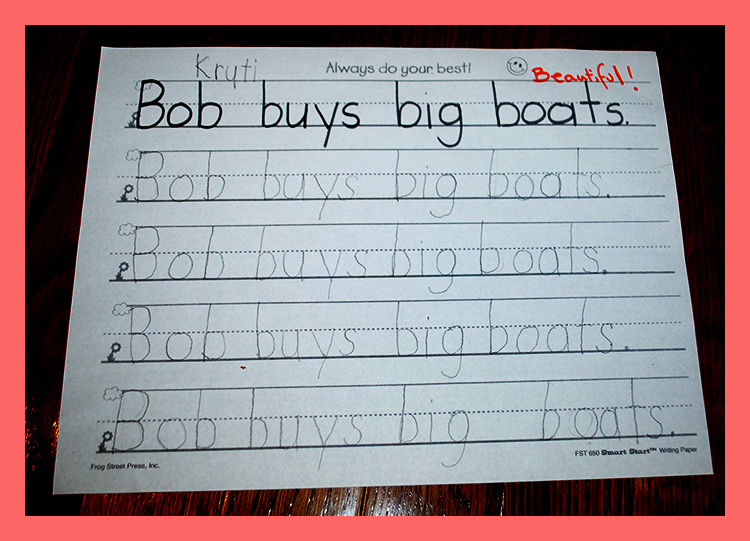 Kryti Always do your best! Beautiful!
Bob buys big boats.
Bob buys big boats.
Bob buys big boats.
Bob buys big boats.
Bob buys big boats.
Frog Street Press, Inc. FST 650 Smart Start™ Writing Paper